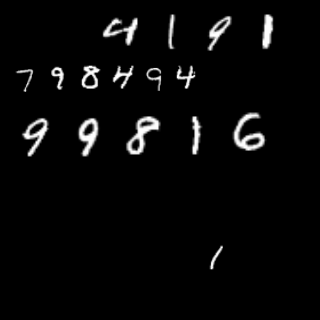 4191
798494
99816
1